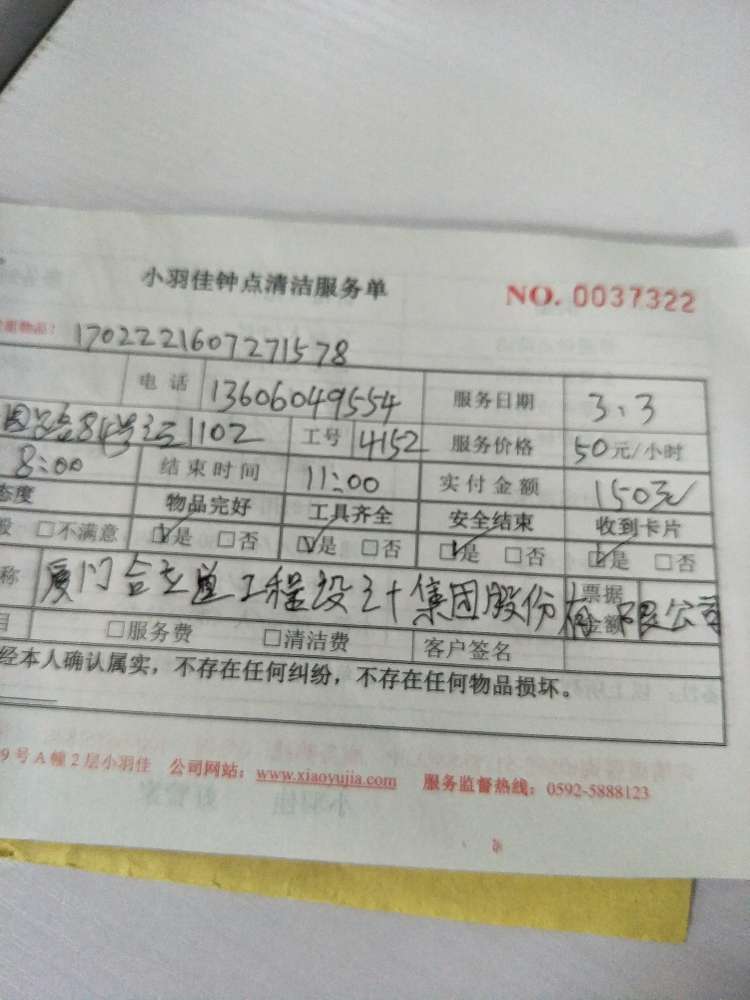 小羽佳钟点清洁服务单 NO. 0037322
物品： 1702221607271578
电话 13606049554 服务日期 3、3
84号之三1102 工号 4152 服务价格 50元/小时
8:00 结束时间 11:00 实付金额 150元
态度 物品完好 工具齐全 安全结束 收到卡片
般 □不满意 ☑是 □否 ☑是 □否 ☑是 □否 ☑是 □否
称 厦门合立道工程设计集团股份有限公司 票据金额
目 □服务费 □清洁费 客户签名
经本人确认属实，不存在任何纠纷，不存在任何物品损坏。
9号A幢2层小羽佳 公司网站：www.xiaoyujia.com 服务监督热线：0592-5888123